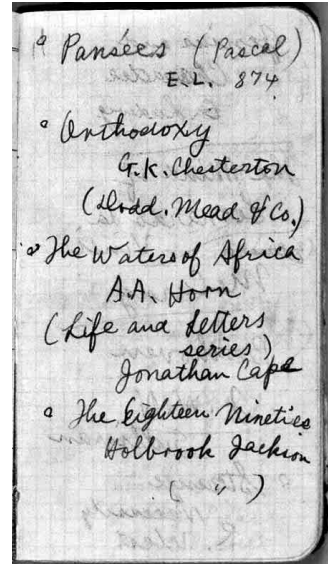 Pansées (Pascal)
E.L. 874
Orthodoxy
G.K. Chesterton
(Dodd. Mead & Co.)
The Waters of Africa
A.A. Horn
(Life and Letters
series)
Jonathan Cape
The Eighteen Nineties
Holbrook Jackson
( " )